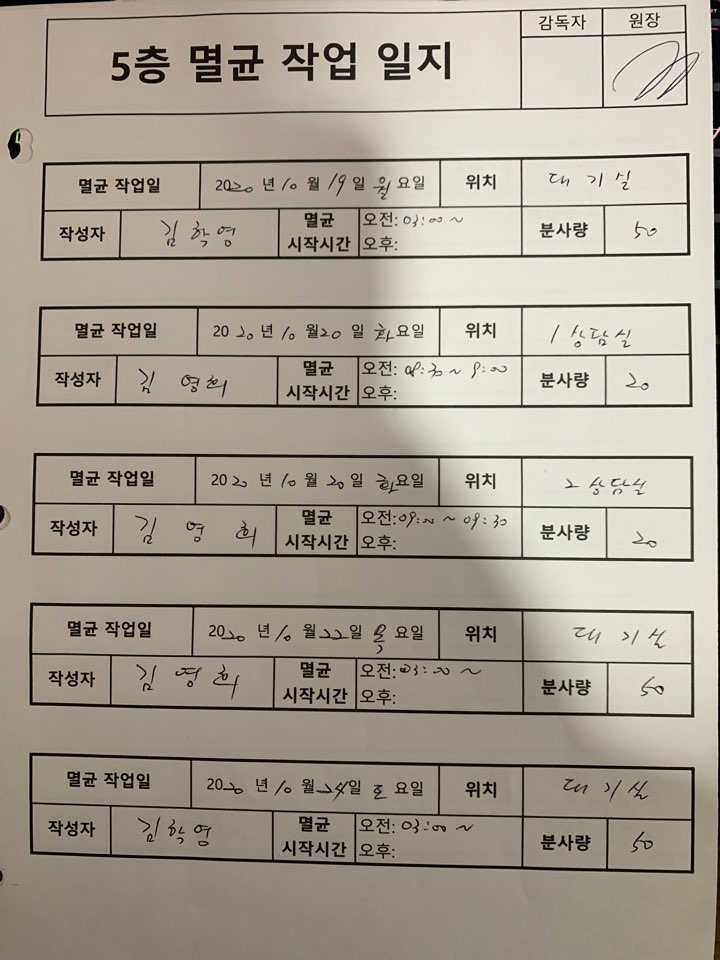 감독자 원장
5층 멸균 작업 일지
멸균 작업일 2020 년 10 월 19 일 월 요일 위치 대기실
작성자 김학영 멸균 시작시간 오전: 03:00 ~ 분사량 50
오후:
멸균 작업일 2020 년 10 월 20 일 화 요일 위치 1 상담실
작성자 김영희 멸균 시작시간 오전: 08:30 ~ 9:00 분사량 20
오후:
멸균 작업일 2020 년 10 월 20 일 화 요일 위치 2 상담실
작성자 김영희 멸균 시작시간 오전: 09:00 ~ 09:30 분사량 20
오후:
멸균 작업일 2020 년 10 월 22 일 목 요일 위치 대기실
작성자 김영희 멸균 시작시간 오전: 03:00 ~ 분사량 50
오후:
멸균 작업일 2020 년 10 월 24 일 토 요일 위치 대기실
작성자 김학영 멸균 시작시간 오전: 03:00 ~ 분사량 50
오후: